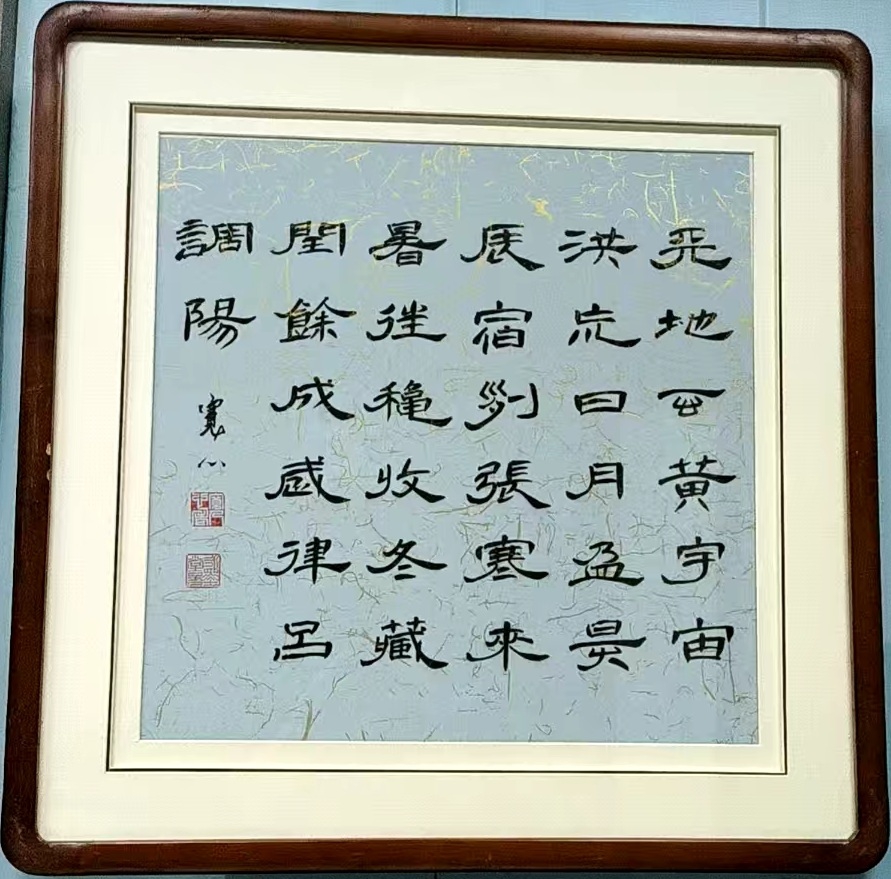 天地玄黃宇宙
洪荒日月盈昃
辰宿列張寒來
暑往穐收冬藏
閏餘成歲律呂
調陽
寬心